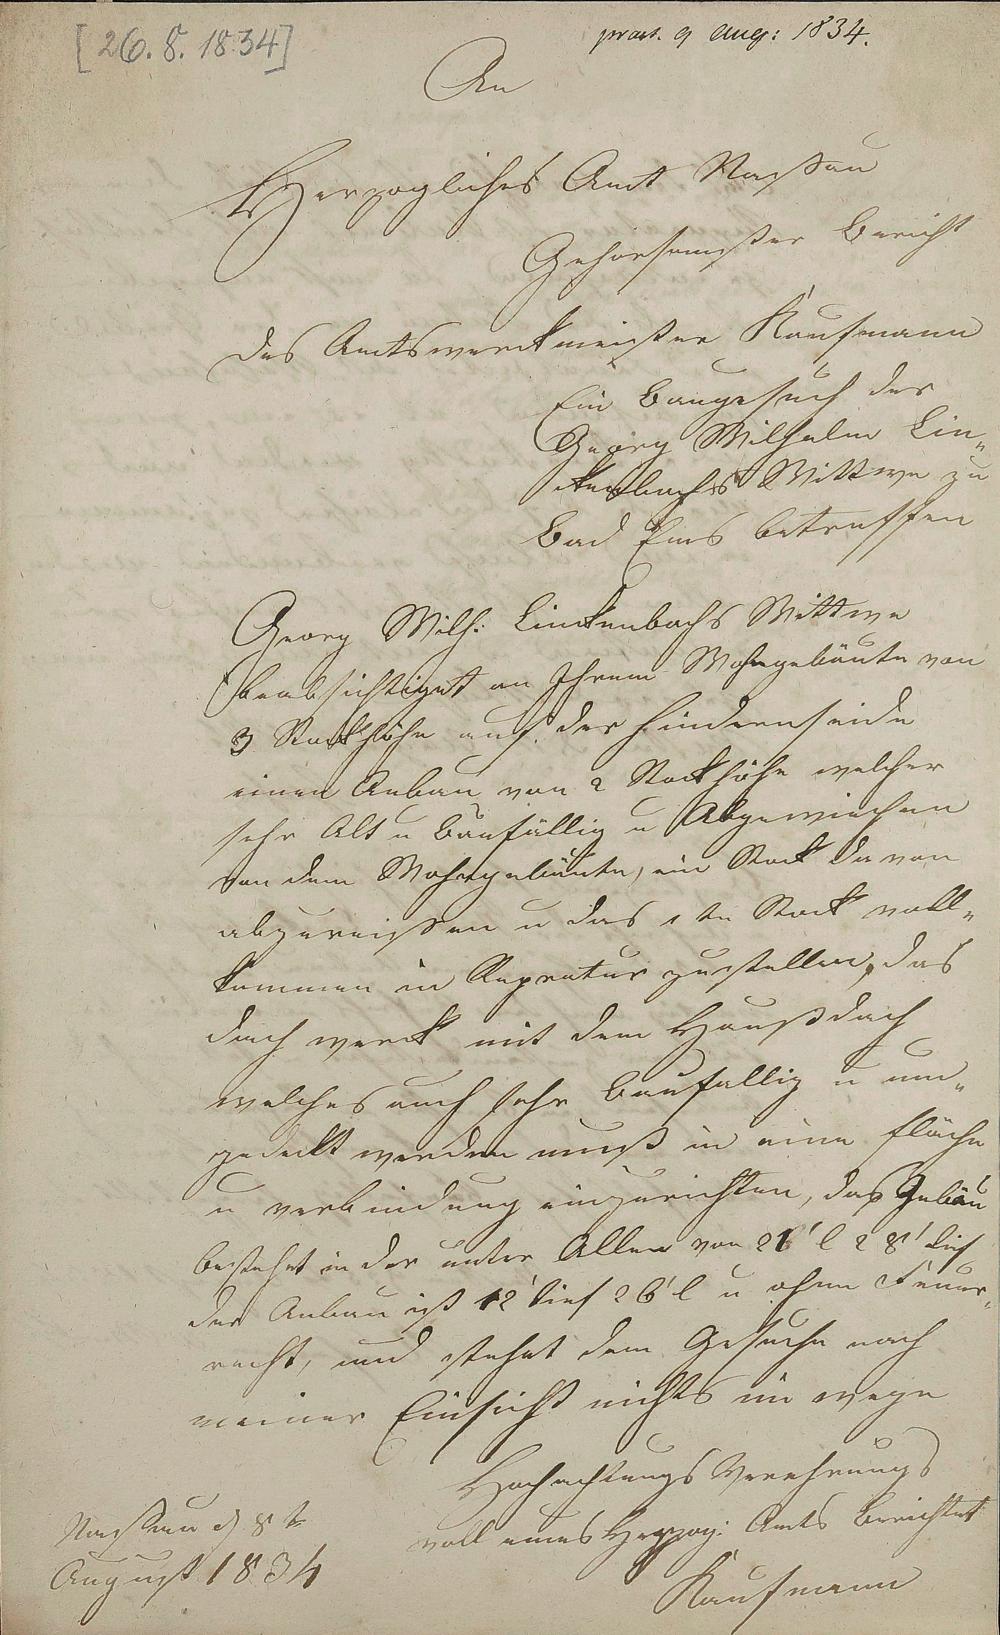 [26. 8. 1834]
praes. 9 Aug: 1834.
An
Herzogliches Amt Nassau
Gehorsamster Bericht
des Amtswerckmeister Kaufmann
Ein Baugesuch der
Georg Wilhelm Lin„
ckenbachs Wittwe zu
Bad Ems betreffen
Georg Wilh: Linckenbachs Wittwe
beabsichtiget an Ihrem Wohngebäute von
3 Stockhöhe auf der hinderenseide
einen Anbau von 2 Stockhöhe welcher
sehr Alt u Baufällig u Abgewiechen
von dem Wohngebäute, ein Stock davon
abzureissen u das 1te Stock voll„
kommen in Repratur zustellen, das
dach werck mit dem Haußdach
welches auch sehr baufallig u um„
gedeckt werden muß in eine fläche
u verbindung einzurichten, das Gebäu
bestehet in der unter Allee von 26' l 28' tief
der Anbau ist 12' tief 26' l u ohne Feuer„
recht, und stehet dem Gesuche nach
meiner Einsicht nichts im wege
Hochachtungs Verehrungs
voll eines Herzog: Amts Berichtet
Nassau d 8t
August 1834
Kaufmann